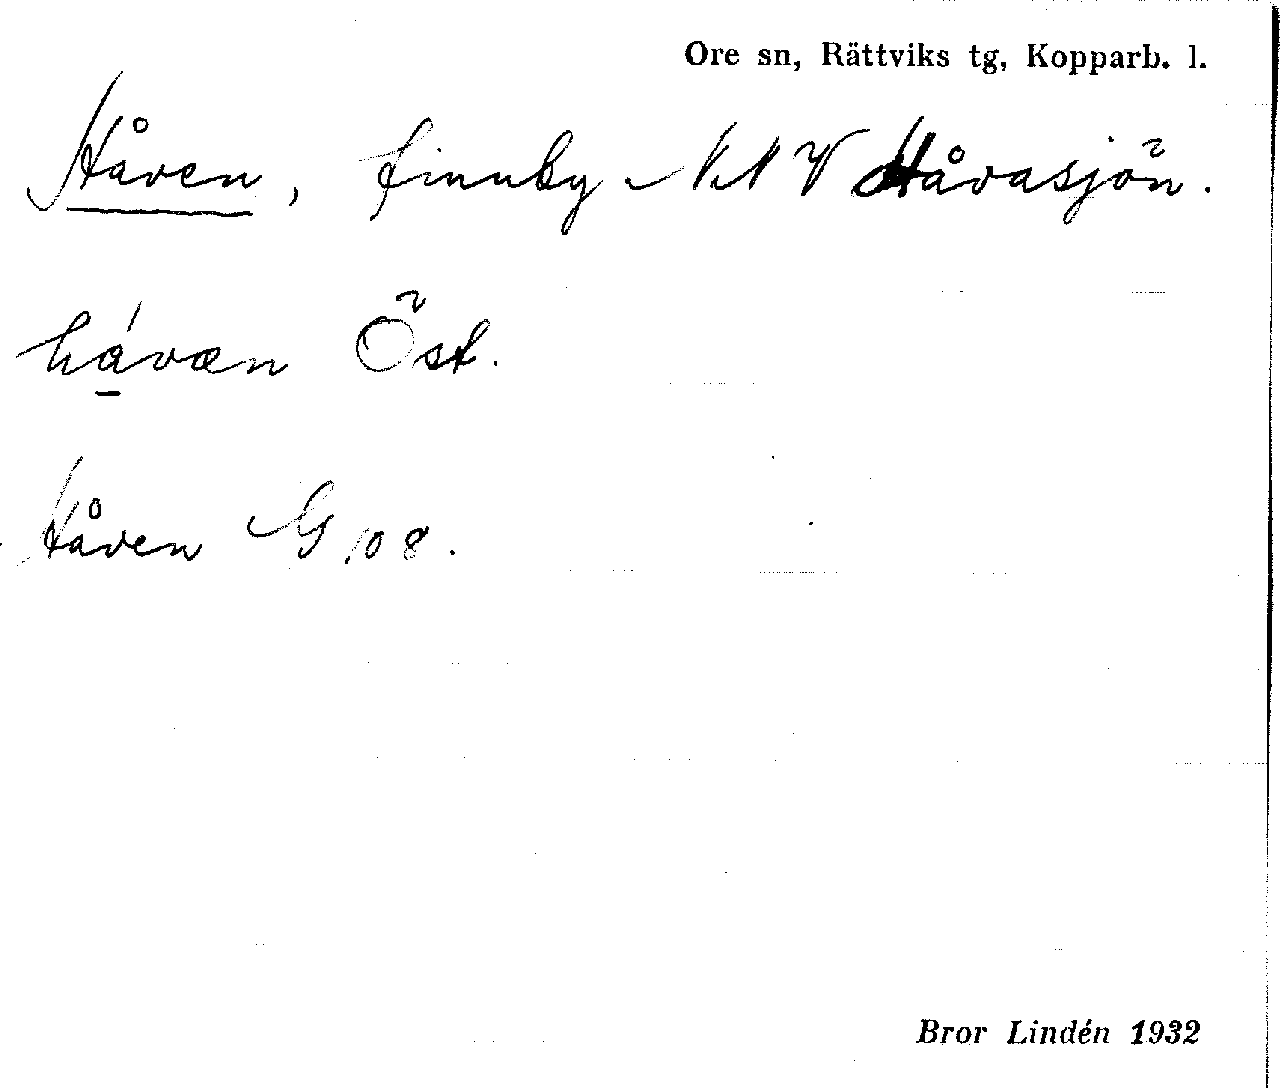 Ore sn, Rättviks tg, Kopparb. l.
Håven, finnby NNV Håvasjön.
há̱væn Öst.
Håven G 108.
Bror Lindén 1932